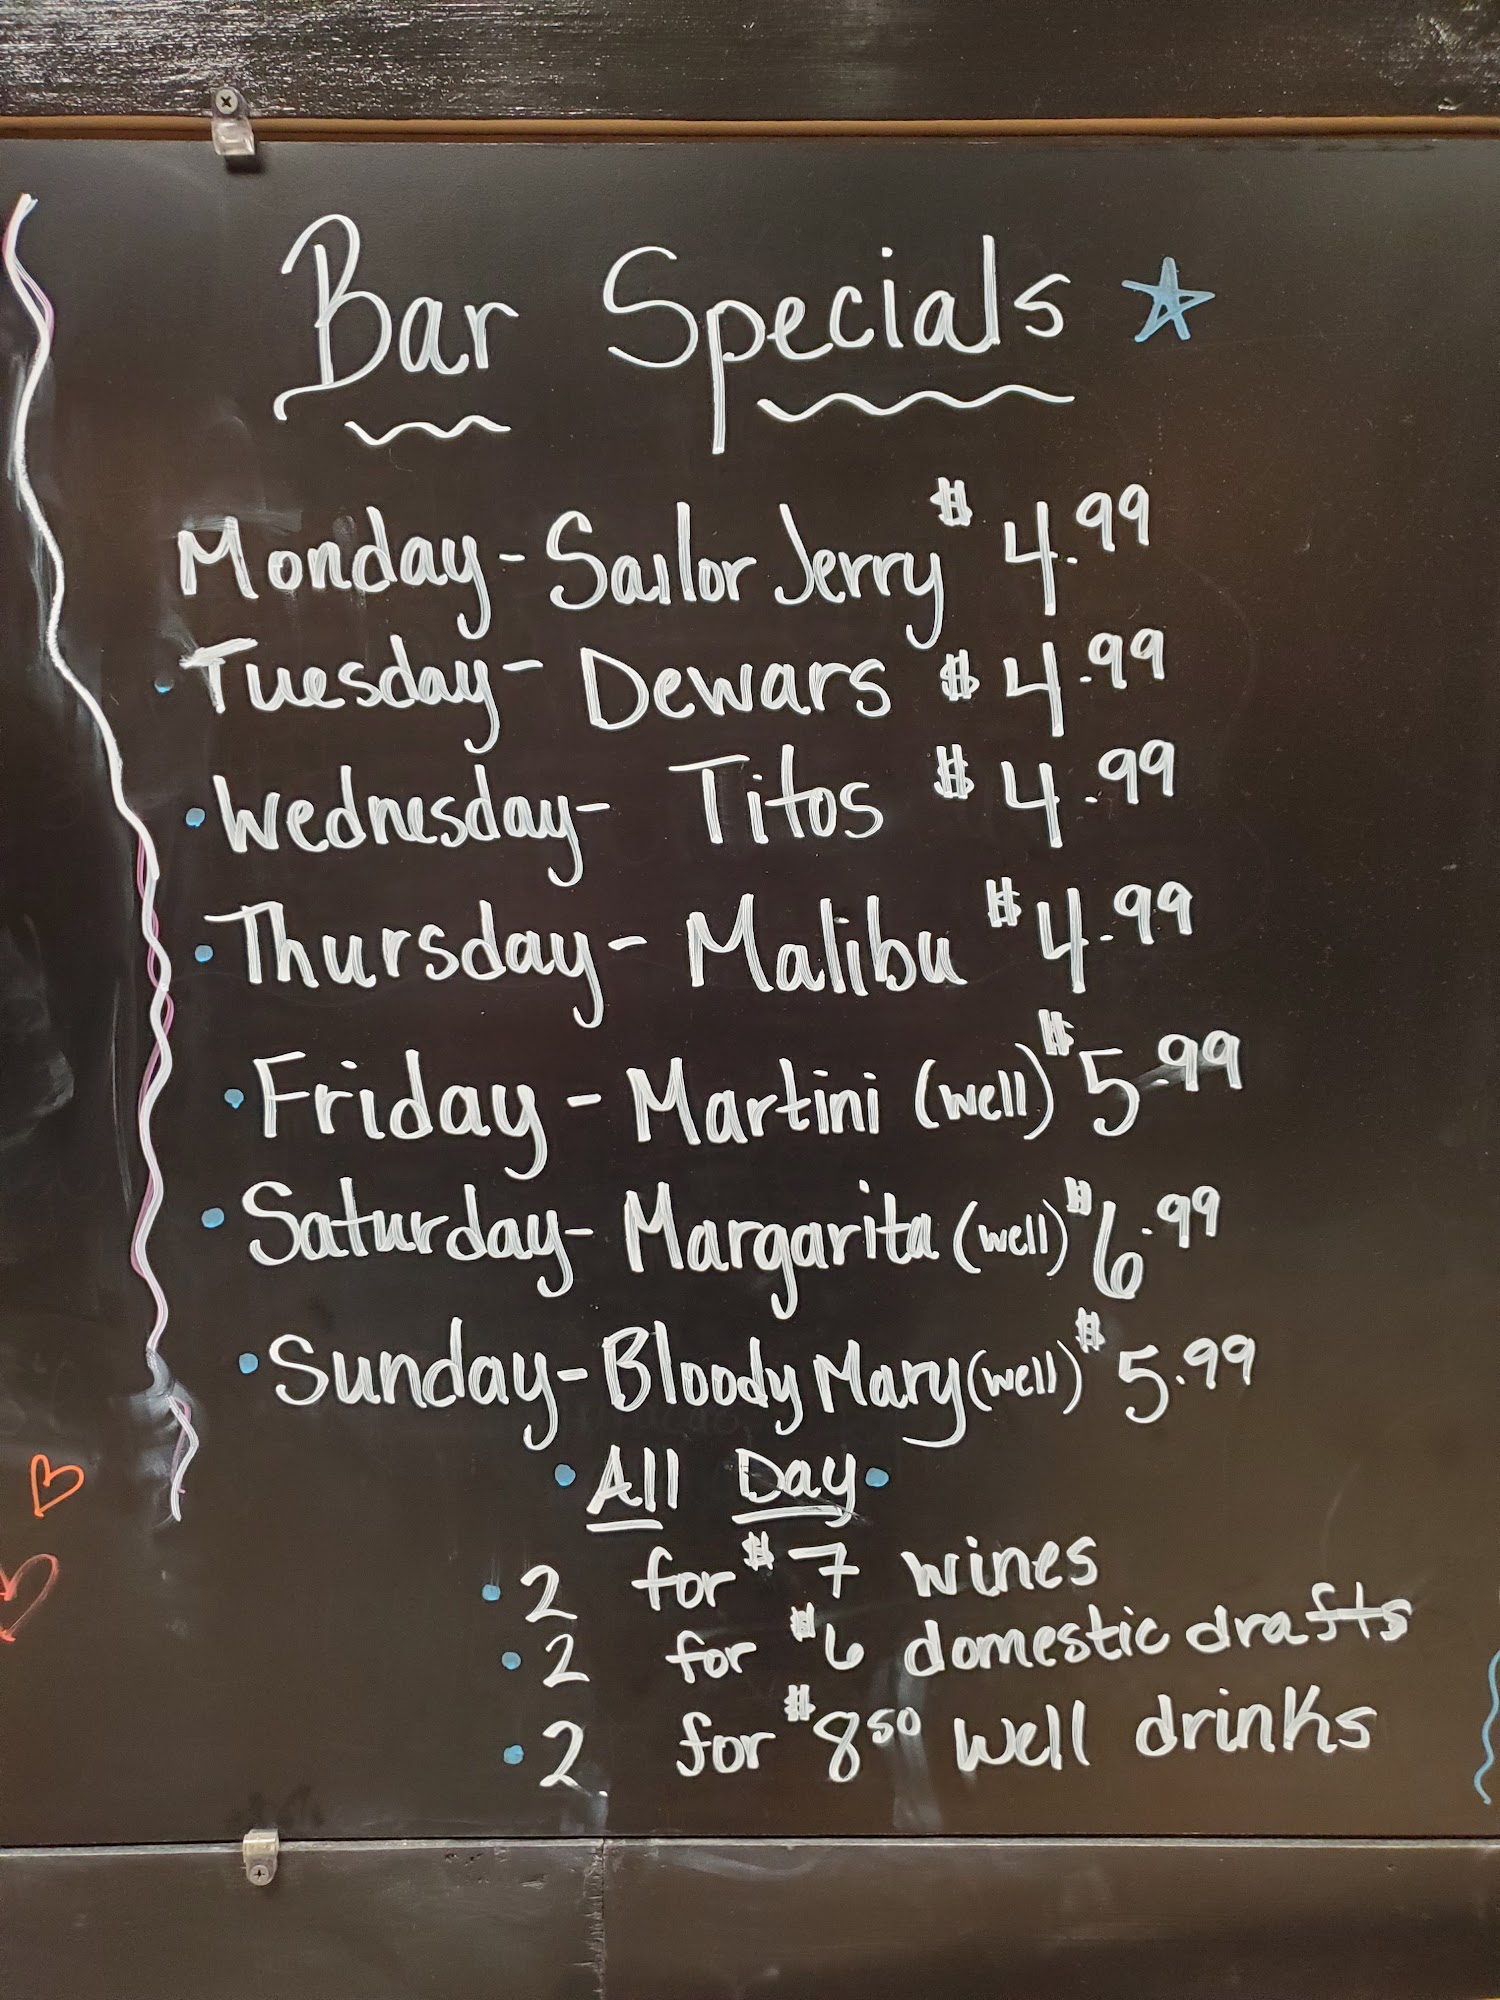 Bar Specials
Monday - Sailor Jerry $4.99
Tuesday - Dewars $4.99
Wednesday - Titos $4.99
Thursday - Malibu $4.99
Friday - Martini (well) $5.99
Saturday - Margarita (well) $6.99
Sunday - Bloody Mary (well) $5.99
All Day
2 for $7 wines
2 for $6 domestic drafts
2 for $8 50 well drinks